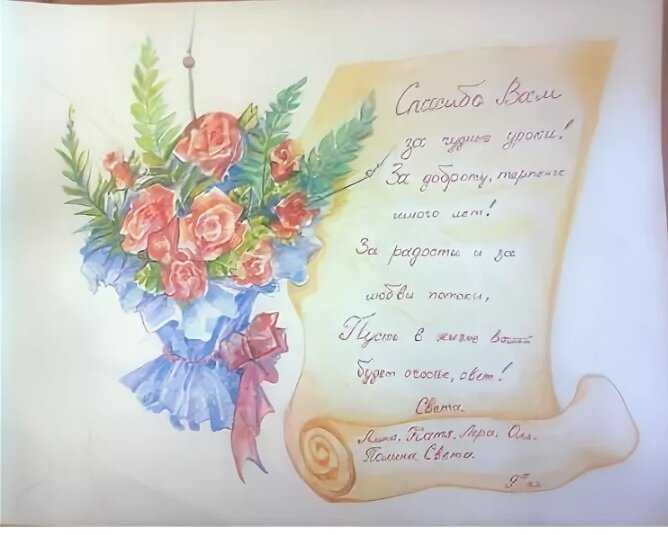 Спасибо Вам
за чудные уроки!
За доброту, терпение
много лет!
За радость и за
любви потоки,
Пусть в жизни вашей
будет счастье, свет!
Света.
Катя, Лера, Оля,
Полина Света.